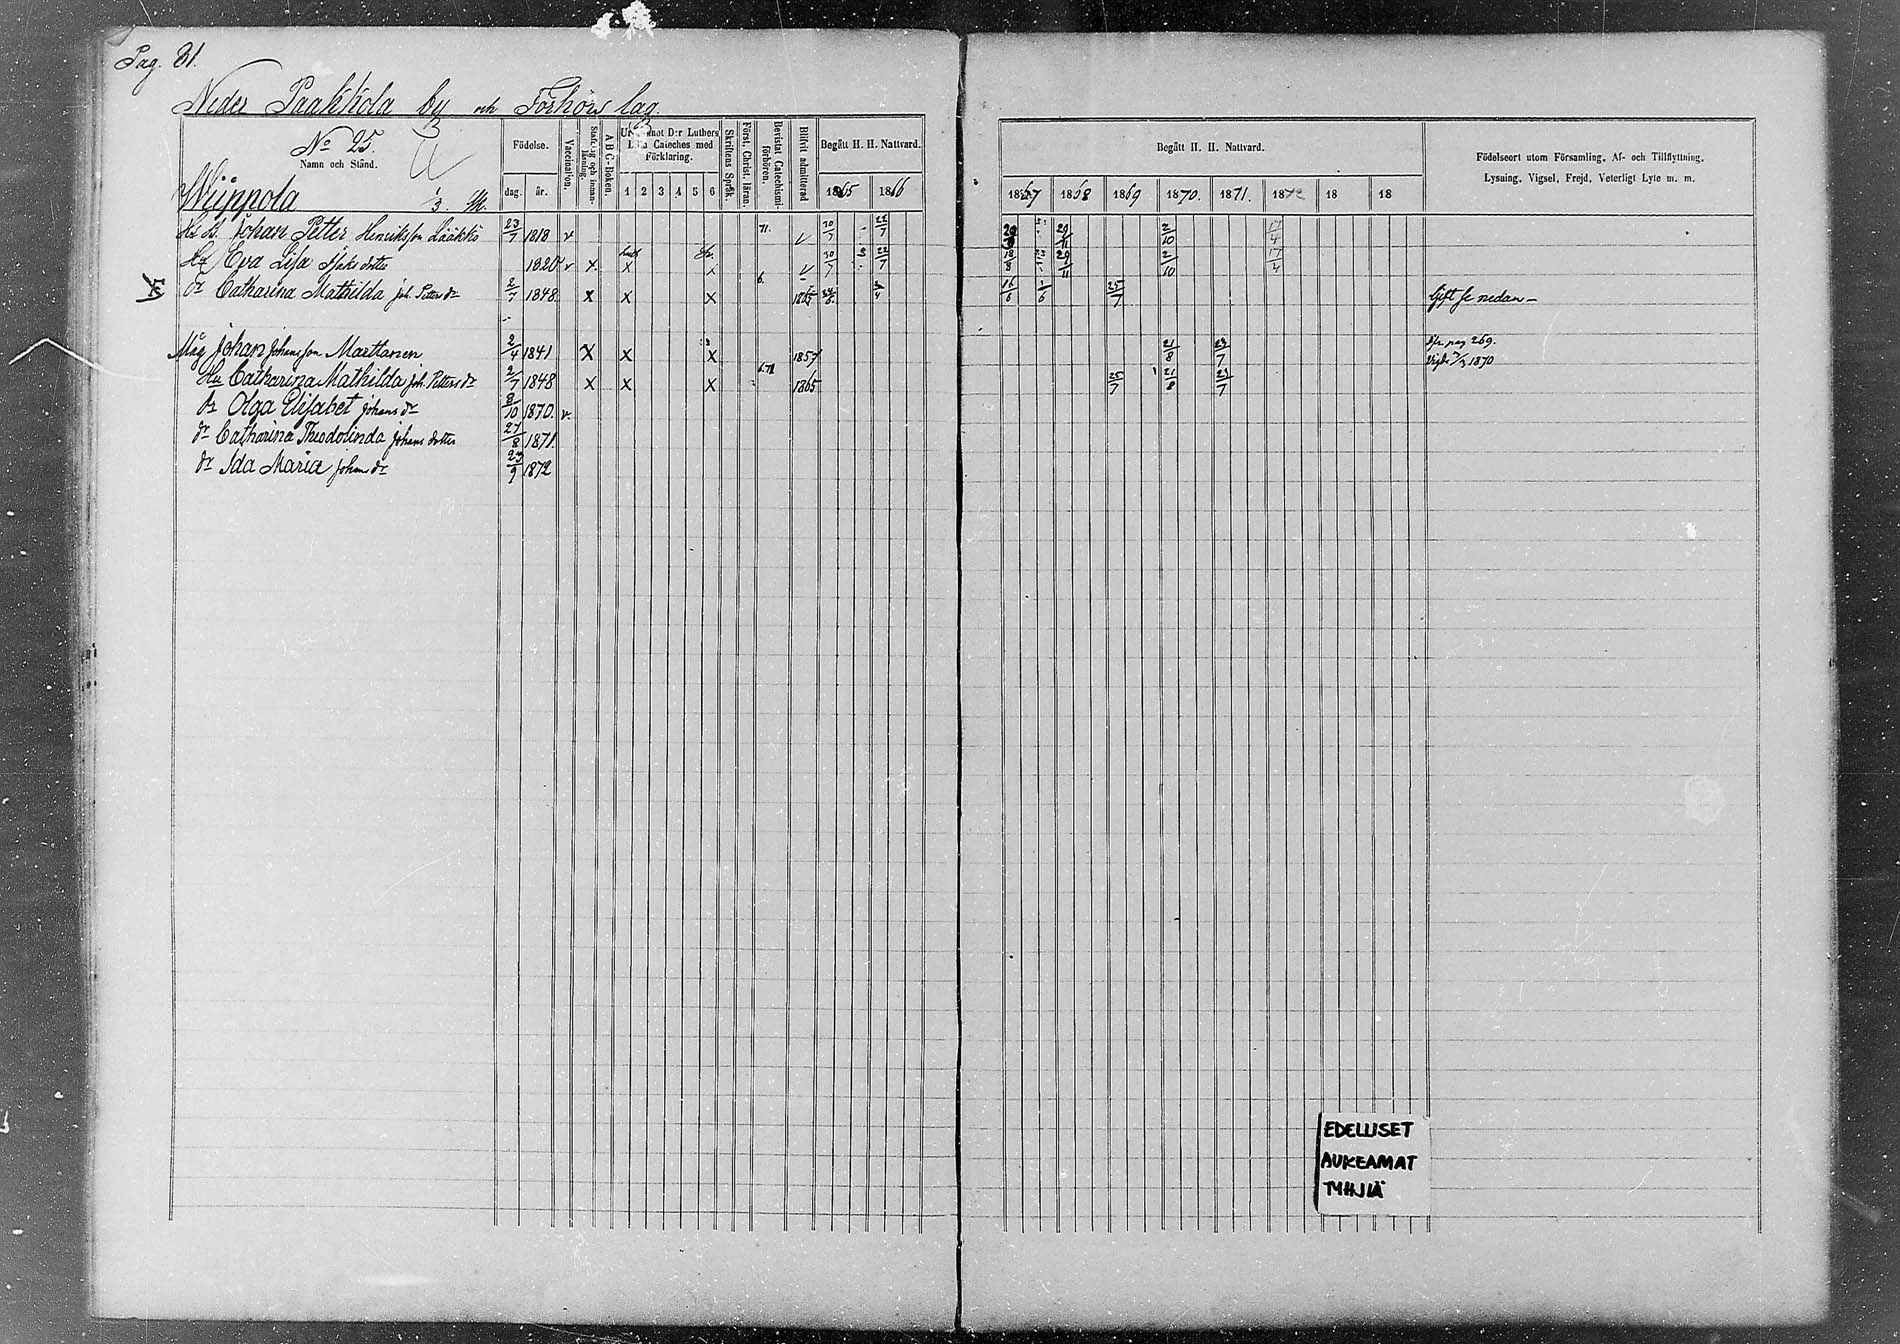 Pag. 81.
Neder Paakkola by och Förhörs lag.
No 25.
Namn och Stånd.
Födelse.
dag. år.
Vaccination.
Stafning och innanläsning.
ABC-Boken.
Lilla Cateches med
Förklaring.
1 2 3 4 5 6
Skriftens Språk.
Först. Christ. läran.
Bevistat Catechismiförhören.
Blifvit admitterad
Begått H. H. Nattvard.
1865 1866
Begått H. H. Nattvard.
1867 1868 1869 1870. 1871. 1872 18 18
Födelseort utom Församling, Af- och Tillflyttning,
Lysning, Vigsel, Frejd, Veterligt Lyte m. m.
Wiippola 1/3 M.
Johan Petter Henriksson Lääkkö 23/7 1818 v 71. 22/7 29/11 2/10 17/4
Hu Eva Lisa dotter 1820 v x x 22/7 29/11 2/10 17/4
dr Catharina Mathilda joh. Petters dr 2/7 1848 x x x 6. 1865 16/6 1/6 25/7 Gift se nedan —
Måg Johan Johansson Marttanen 2/4 1841 x x x 1857 21/8 23/7 pag 269.
Vigde 1870
Hu Catharina Mathilda joh. Petters dr 2/7 1848 x x x 1865 25/7 21/8 23/7
dr Olga Elisabet johans dr 8/10 1870. v.
dr Catharina Theodolinda johans dotter 27/8 1871.
dr Ida Maria johans dr 23/9 1872
EDELLISET
AUKEAMAT
TYHJIÄ